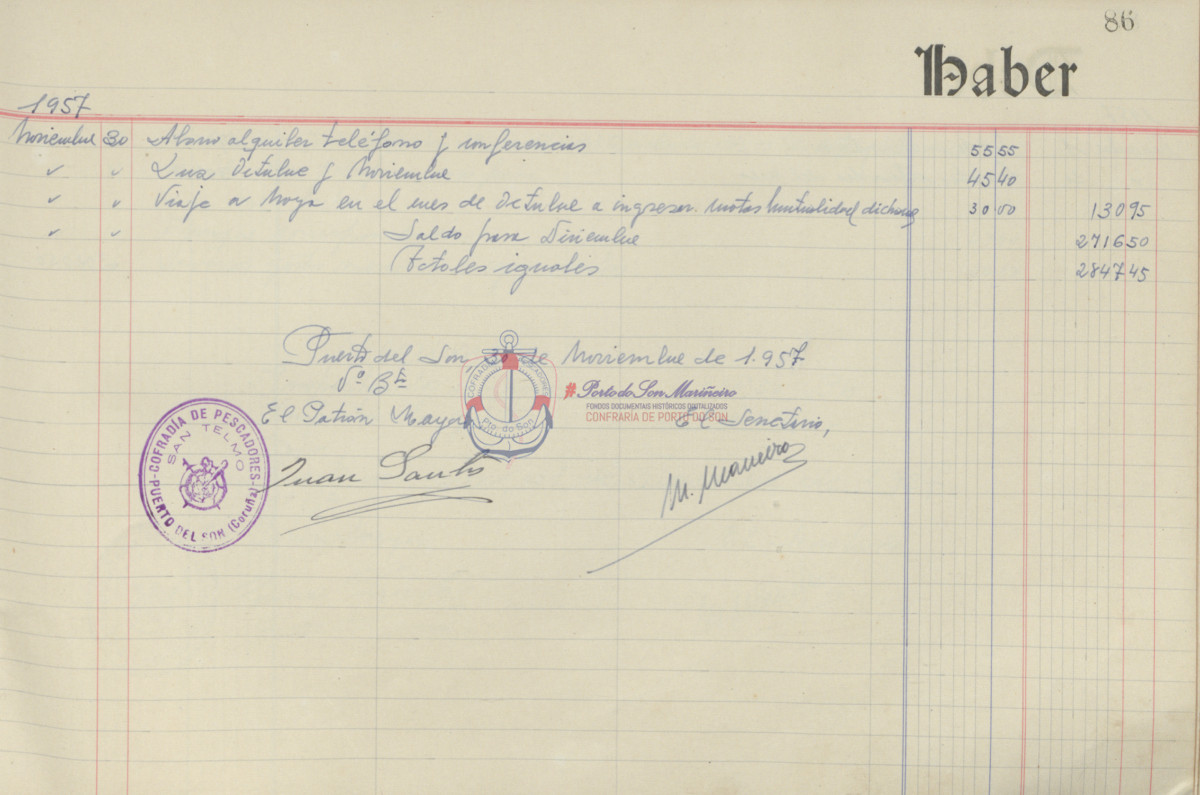 86
Haber
1957
Noviembre 30 Abono alquiler teléfono y conferencias 55 55
" " Luz Octubre y Noviembre 45 40
" " Viaje a Noya en el mes de Octubre a ingresar cuotas Mutualidad dicho mes 30 00 130 95
" " Saldo para Diciembre 2716 50
Totales iguales 2847 45
Puerto del Son, 30 de Noviembre de 1.957
Vº Bº
El Patrón Mayor El Secretario,
Juan Santos M. Maneiro
COFRADÍA DE PESCADORES
SAN TELMO
PUERTO DEL SON (Coruña)
COFRADÍA PESCADORES
Pto. do Son
#PortodoSonMariñeiro
FONDOS DOCUMENTAIS HISTÓRICOS DIGITALIZADOS
CONFRARÍA DE PORTO DO SON